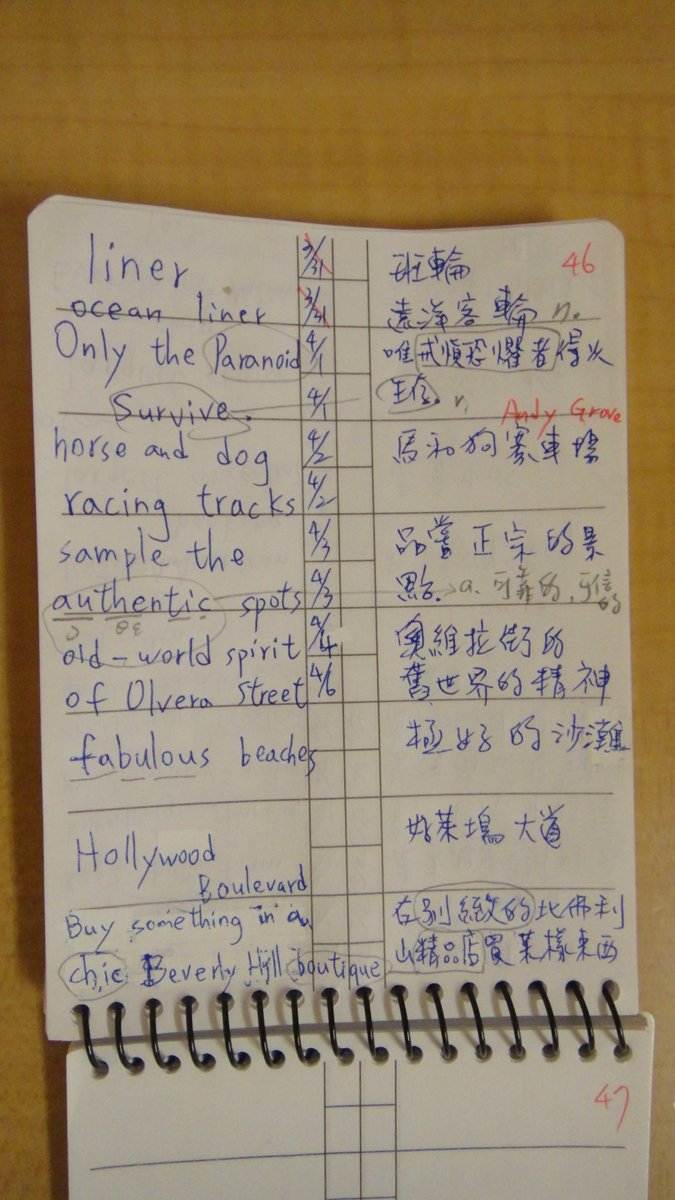 liner 3/31 班輪 46
ocean liner 3/31 遠洋客輪 n.
Only the Paranoid 4/1 唯戒慎恐懼者得以
Survive. 4/1 生存。 v.
Andy Grove
horse and dog 4/2 馬和狗賽車場
racing tracks 4/2
sample the 4/3 品嘗正宗的景
authentic spots 4/3 點. a. 可靠的, 可信的
old-world spirit 4/4 奧維拉街的
of Olvera Street 4/6 舊世界的精神
fabulous beaches 極好的沙灘
Hollywood 好萊塢大道
Boulevard
Buy something in a 在別緻的比佛利
chic Beverly Hill boutique 山精品店買某樣東西
47